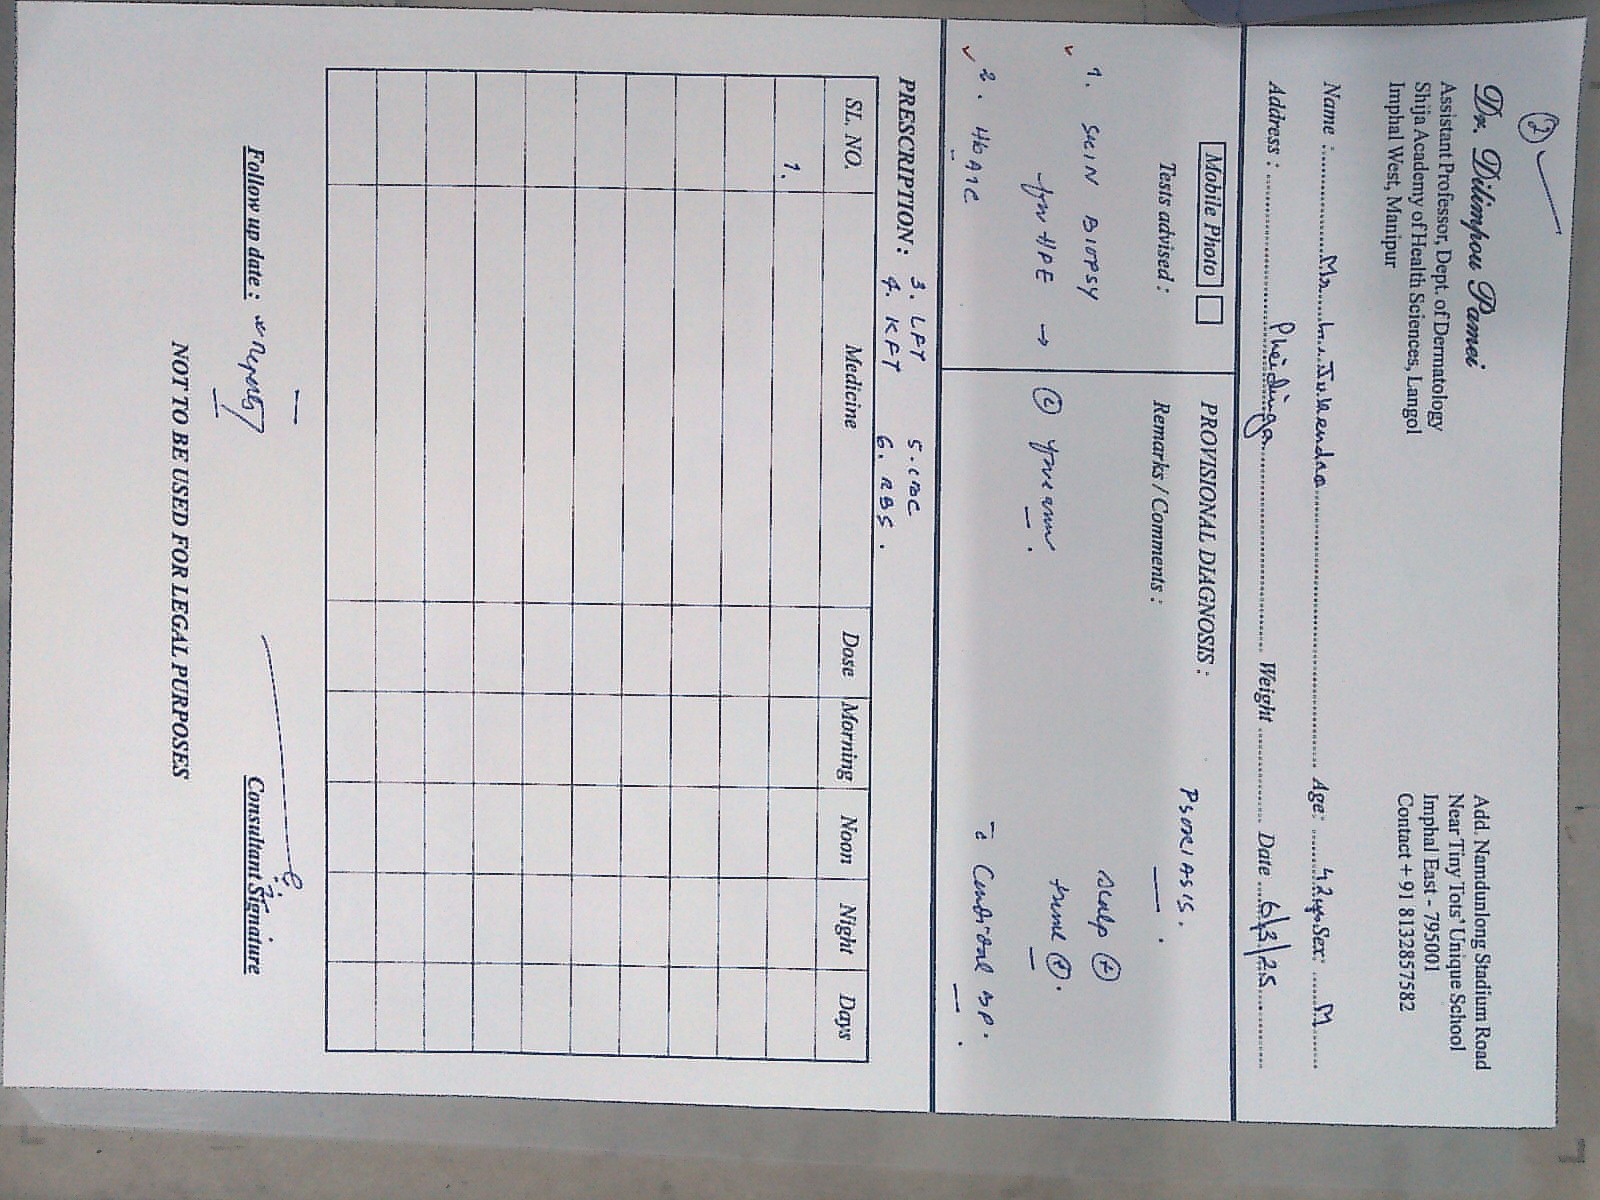 2
Dr. Dilimpou Pamei
Assistant Professor, Dept. of Dermatology
Shija Academy of Health Sciences, Langol
Imphal West, Manipur
Add. Namdunlong Stadium Road
Near Tiny Tots' Unique School
Imphal East - 795001
Contact + 91 8132857582
Name : Mr. Age: 42 yrs Sex: M
Address : Pheidinga Weight Date 6/3/25
Mobile Photo
Tests advised :
1. SKIN BIOPSY
for HPE → forearm.
2. HbA1c
PROVISIONAL DIAGNOSIS : PSORIASIS.
Remarks / Comments :
Scalp +
trunk +.
- Control BP.
PRESCRIPTION : 3. LFT 5. CBC
4. KFT 6. RBS.
SL. NO. Medicine Dose Morning Noon Night Days
1.
Follow up date : reports
Consultant Signature
NOT TO BE USED FOR LEGAL PURPOSES